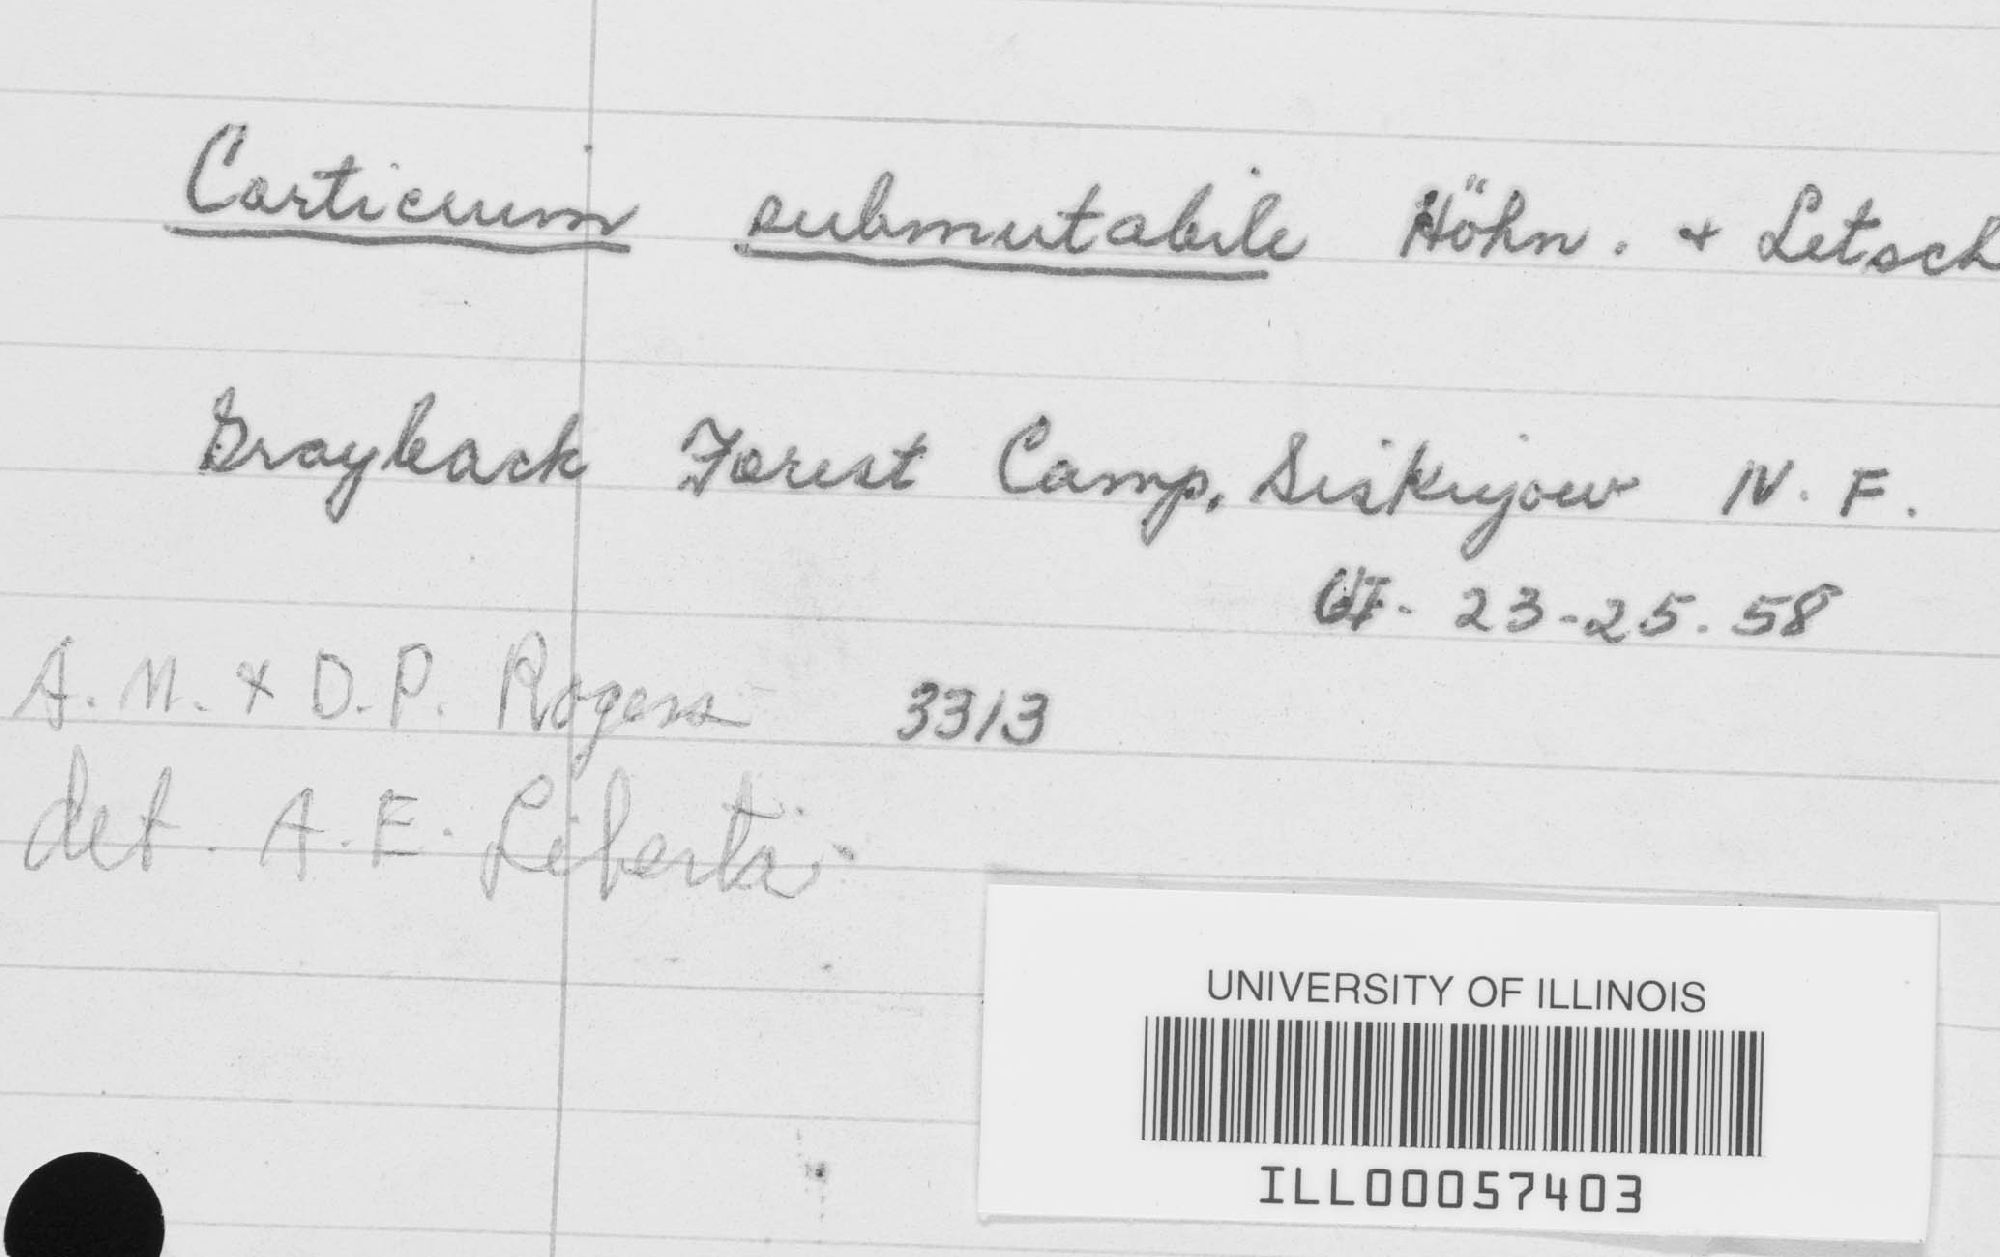 Corticium submutabile Höhn. & Letsch
Grayback Forest Camp, Siskiyou N. F.
VI. 23-25. 58
A. M. & D. P. Rogers 3313
det. A. E. Liberta
UNIVERSITY OF ILLINOIS
ILL00057403